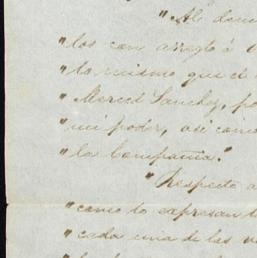 "Al
"los con arreglo á
"lo mismo que el
"Merced Sanchez, po
"mi poder, asi como
"la Compañia."
"Respecto a
"como lo expresan
"cada una de las